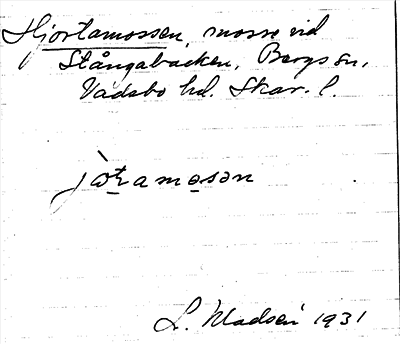 Hjortamossen, mosse vid
Stångabacken, Bergs sn,
Vadsbo hd. Skar. l.
jo̱ṯamo̱sən
L. Madsén 1931